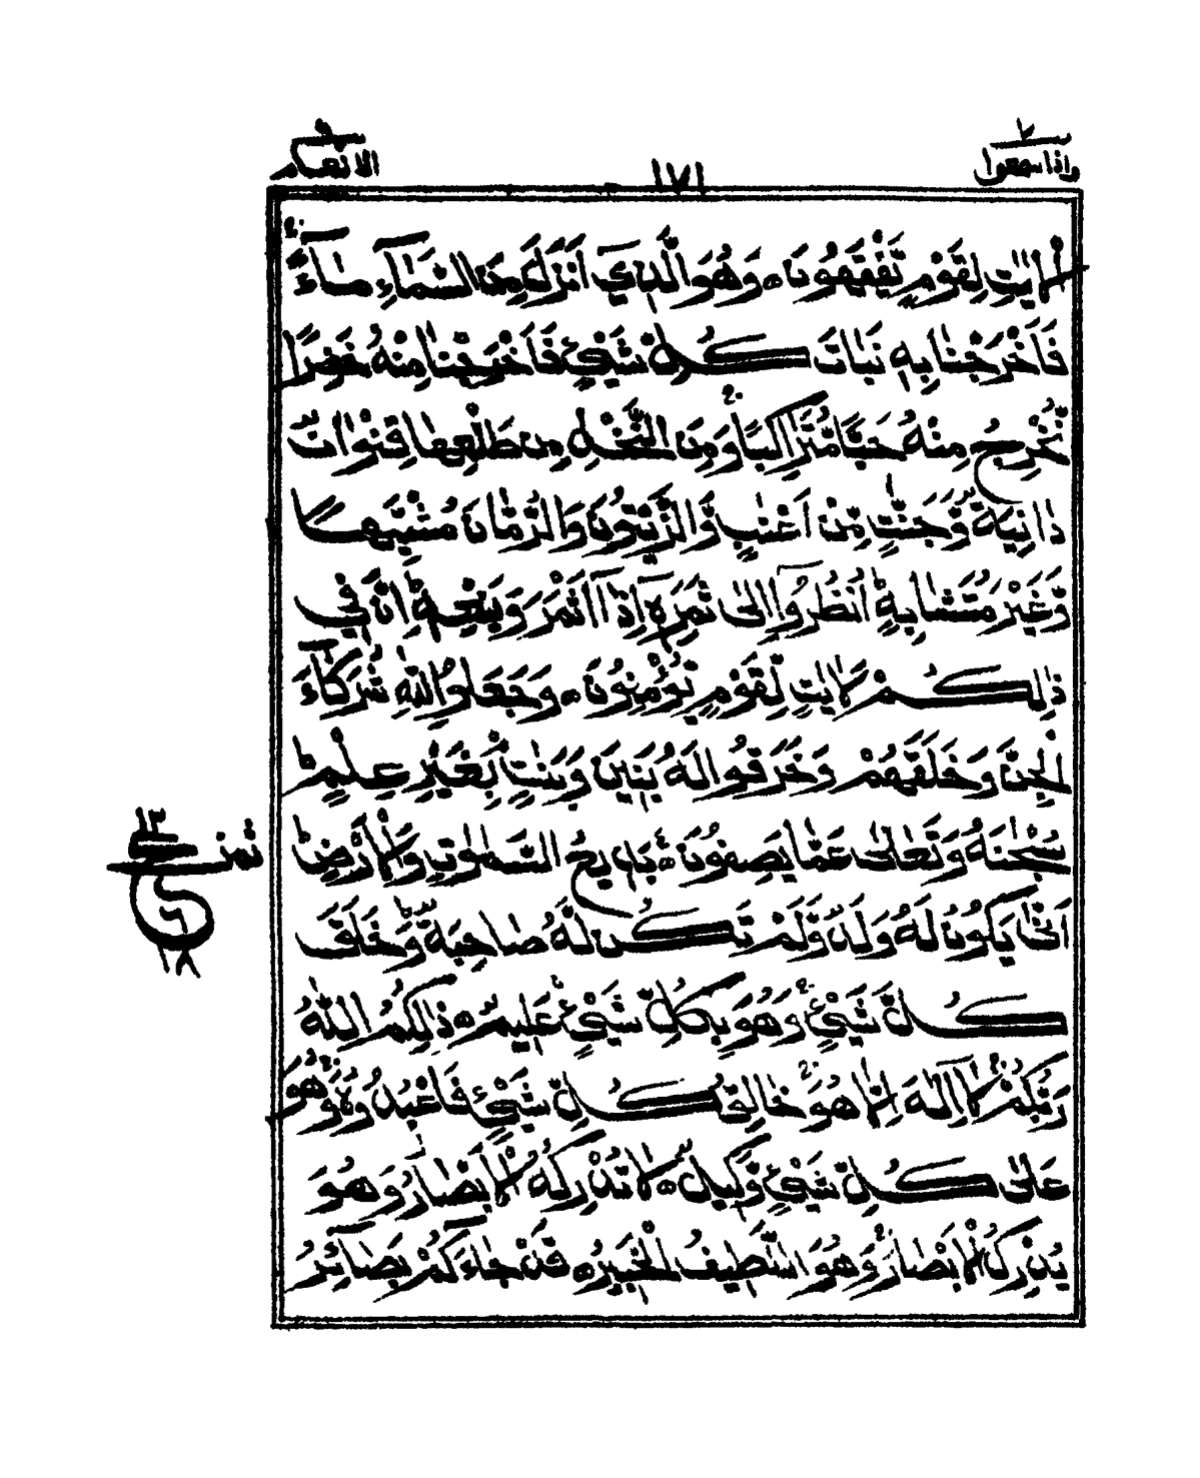 واذا سمعوا ٧
١٧١
الانعام ٦
الْاٰيٰتِ لِقَوْمٍ يَّفْقَهُوْنَ ۝ وَهُوَ الَّذِيْٓ اَنْزَلَ مِنَ السَّمَآءِ مَآءً ۚ
فَاَخْرَجْنَا بِهٖ نَبَاتَ كُلِّ شَيْءٍ فَاَخْرَجْنَا مِنْهُ خَضِرًا
نُّخْرِجُ مِنْهُ حَبًّا مُّتَرَاكِبًا ۚ وَمِنَ النَّخْلِ مِنْ طَلْعِهَا قِنْوَانٌ
دَانِيَةٌ وَّجَنّٰتٍ مِّنْ اَعْنٰبٍ وَّالزَّيْتُوْنَ وَالرُّمَّانَ مُشْتَبِهًا
وَّغَيْرَ مُتَشَابِهٍ ؕ اُنْظُرُوْٓا اِلٰى ثَمَرِهٖٓ اِذَآ اَثْمَرَ وَيَنْعِهٖ ؕ اِنَّ فِيْ
ذٰلِكُمْ لَاٰيٰتٍ لِّقَوْمٍ يُّؤْمِنُوْنَ ۝ وَجَعَلُوْا لِلّٰهِ شُرَكَآءَ
الْجِنَّ وَخَلَقَهُمْ وَخَرَقُوْا لَهٗ بَنِيْنَ وَبَنٰتٍۭ بِغَيْرِ عِلْمٍ ؕ
سُبْحٰنَهٗ وَتَعٰلٰى عَمَّا يَصِفُوْنَ ۝ بَدِيْعُ السَّمٰوٰتِ وَالْاَرْضِ ؕ
ثمن
١٢
ع
٦
١٨
اَنّٰى يَكُوْنُ لَهٗ وَلَدٌ وَّلَمْ تَكُنْ لَّهٗ صَاحِبَةٌ ؕ وَّخَلَقَ
كُلَّ شَيْءٍ ۚ وَهُوَ بِكُلِّ شَيْءٍ عَلِيْمٌ ۝ ذٰلِكُمُ اللّٰهُ
رَبُّكُمْ ۚ لَآ اِلٰهَ اِلَّا هُوَ ۚ خَالِقُ كُلِّ شَيْءٍ فَاعْبُدُوْهُ ۚ وَهُوَ
عَلٰى كُلِّ شَيْءٍ وَّكِيْلٌ ۝ لَا تُدْرِكُهُ الْاَبْصَارُ وَهُوَ
يُدْرِكُ الْاَبْصَارَ ۚ وَهُوَ اللَّطِيْفُ الْخَبِيْرُ ۝ قَدْ جَآءَكُمْ بَصَآئِرُ